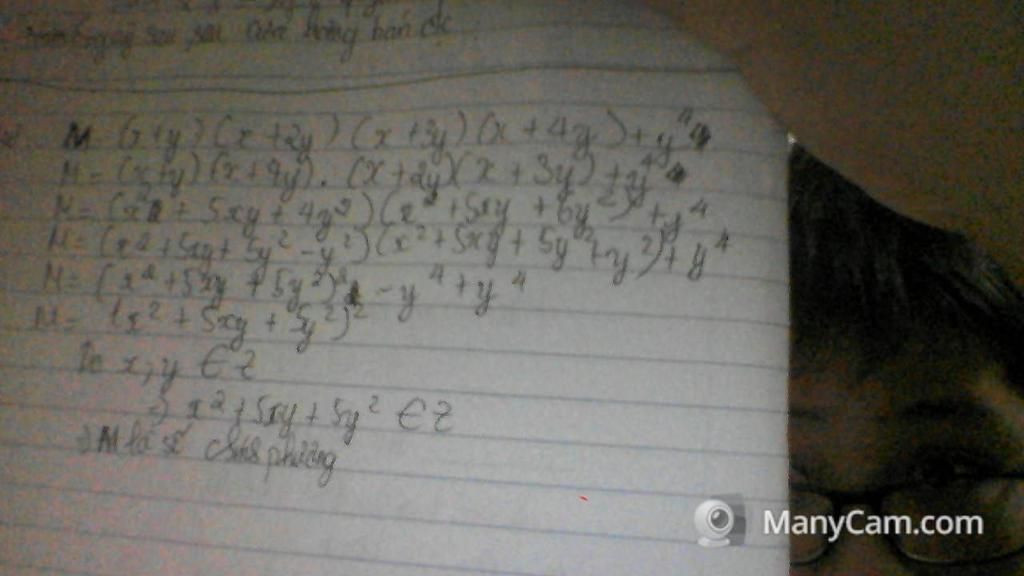 của hoàng bán đc
M = (x+y)(x+2y)(x+3y)(x+4y)+y⁴
M = (x+y)(x+4y).(x+2y)(x+3y)+y⁴
M = (x²+5xy+4y²)(x²+5xy+6y²)+y⁴
M = (x²+5xy+5y²-y²)(x²+5xy+5y²+y²)+y⁴
M = (x²+5xy+5y²)²-y⁴+y⁴
M = (x²+5xy+5y²)²
Do x,y ∈ Z
=> x²+5xy+5y² ∈ Z
=> M là số chính phương
ManyCam.com